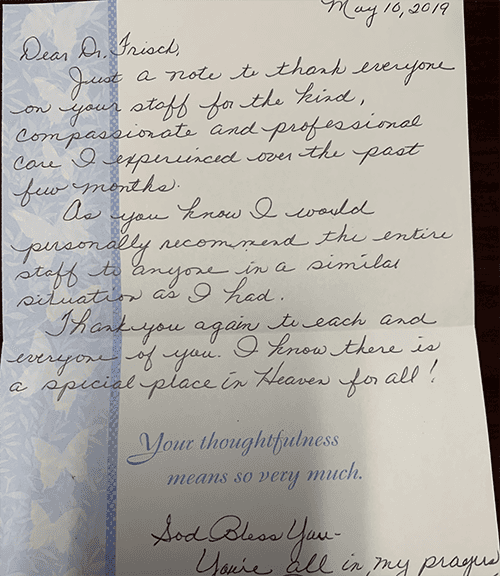 May 10, 2019
Dear Dr. Frisch,
Just a note to thank everyone
on your staff for the kind,
compassionate and professional
care I experienced over the past
few months.
As you know I would
personally recommend the entire
staff to anyone in a similar
situation as I had.
Thank you again to each and
everyone of you. I know there is
a special place in Heaven for all!
Your thoughtfulness
means so very much.
God Bless You-
You're all in my prayers